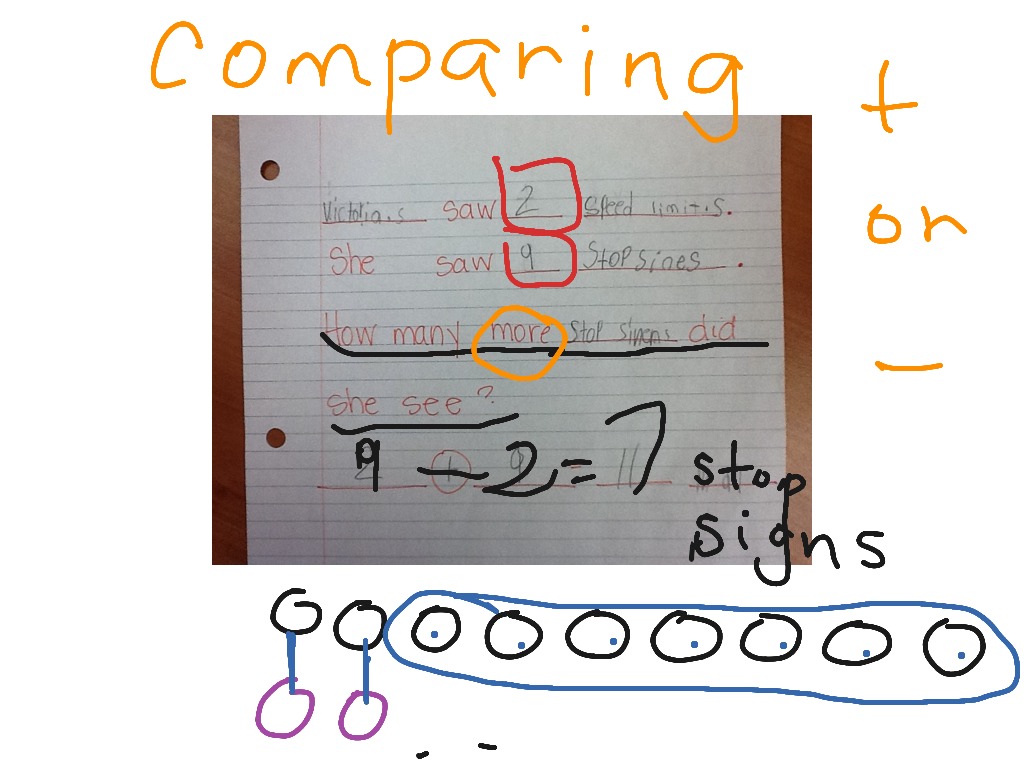 Comparing
+
or
−
Victoria.s saw 2 speed limit.s.
She saw 9 Stop sines.
How many more stop sinens did
she see?
9 − 2 = 7 stop
signs